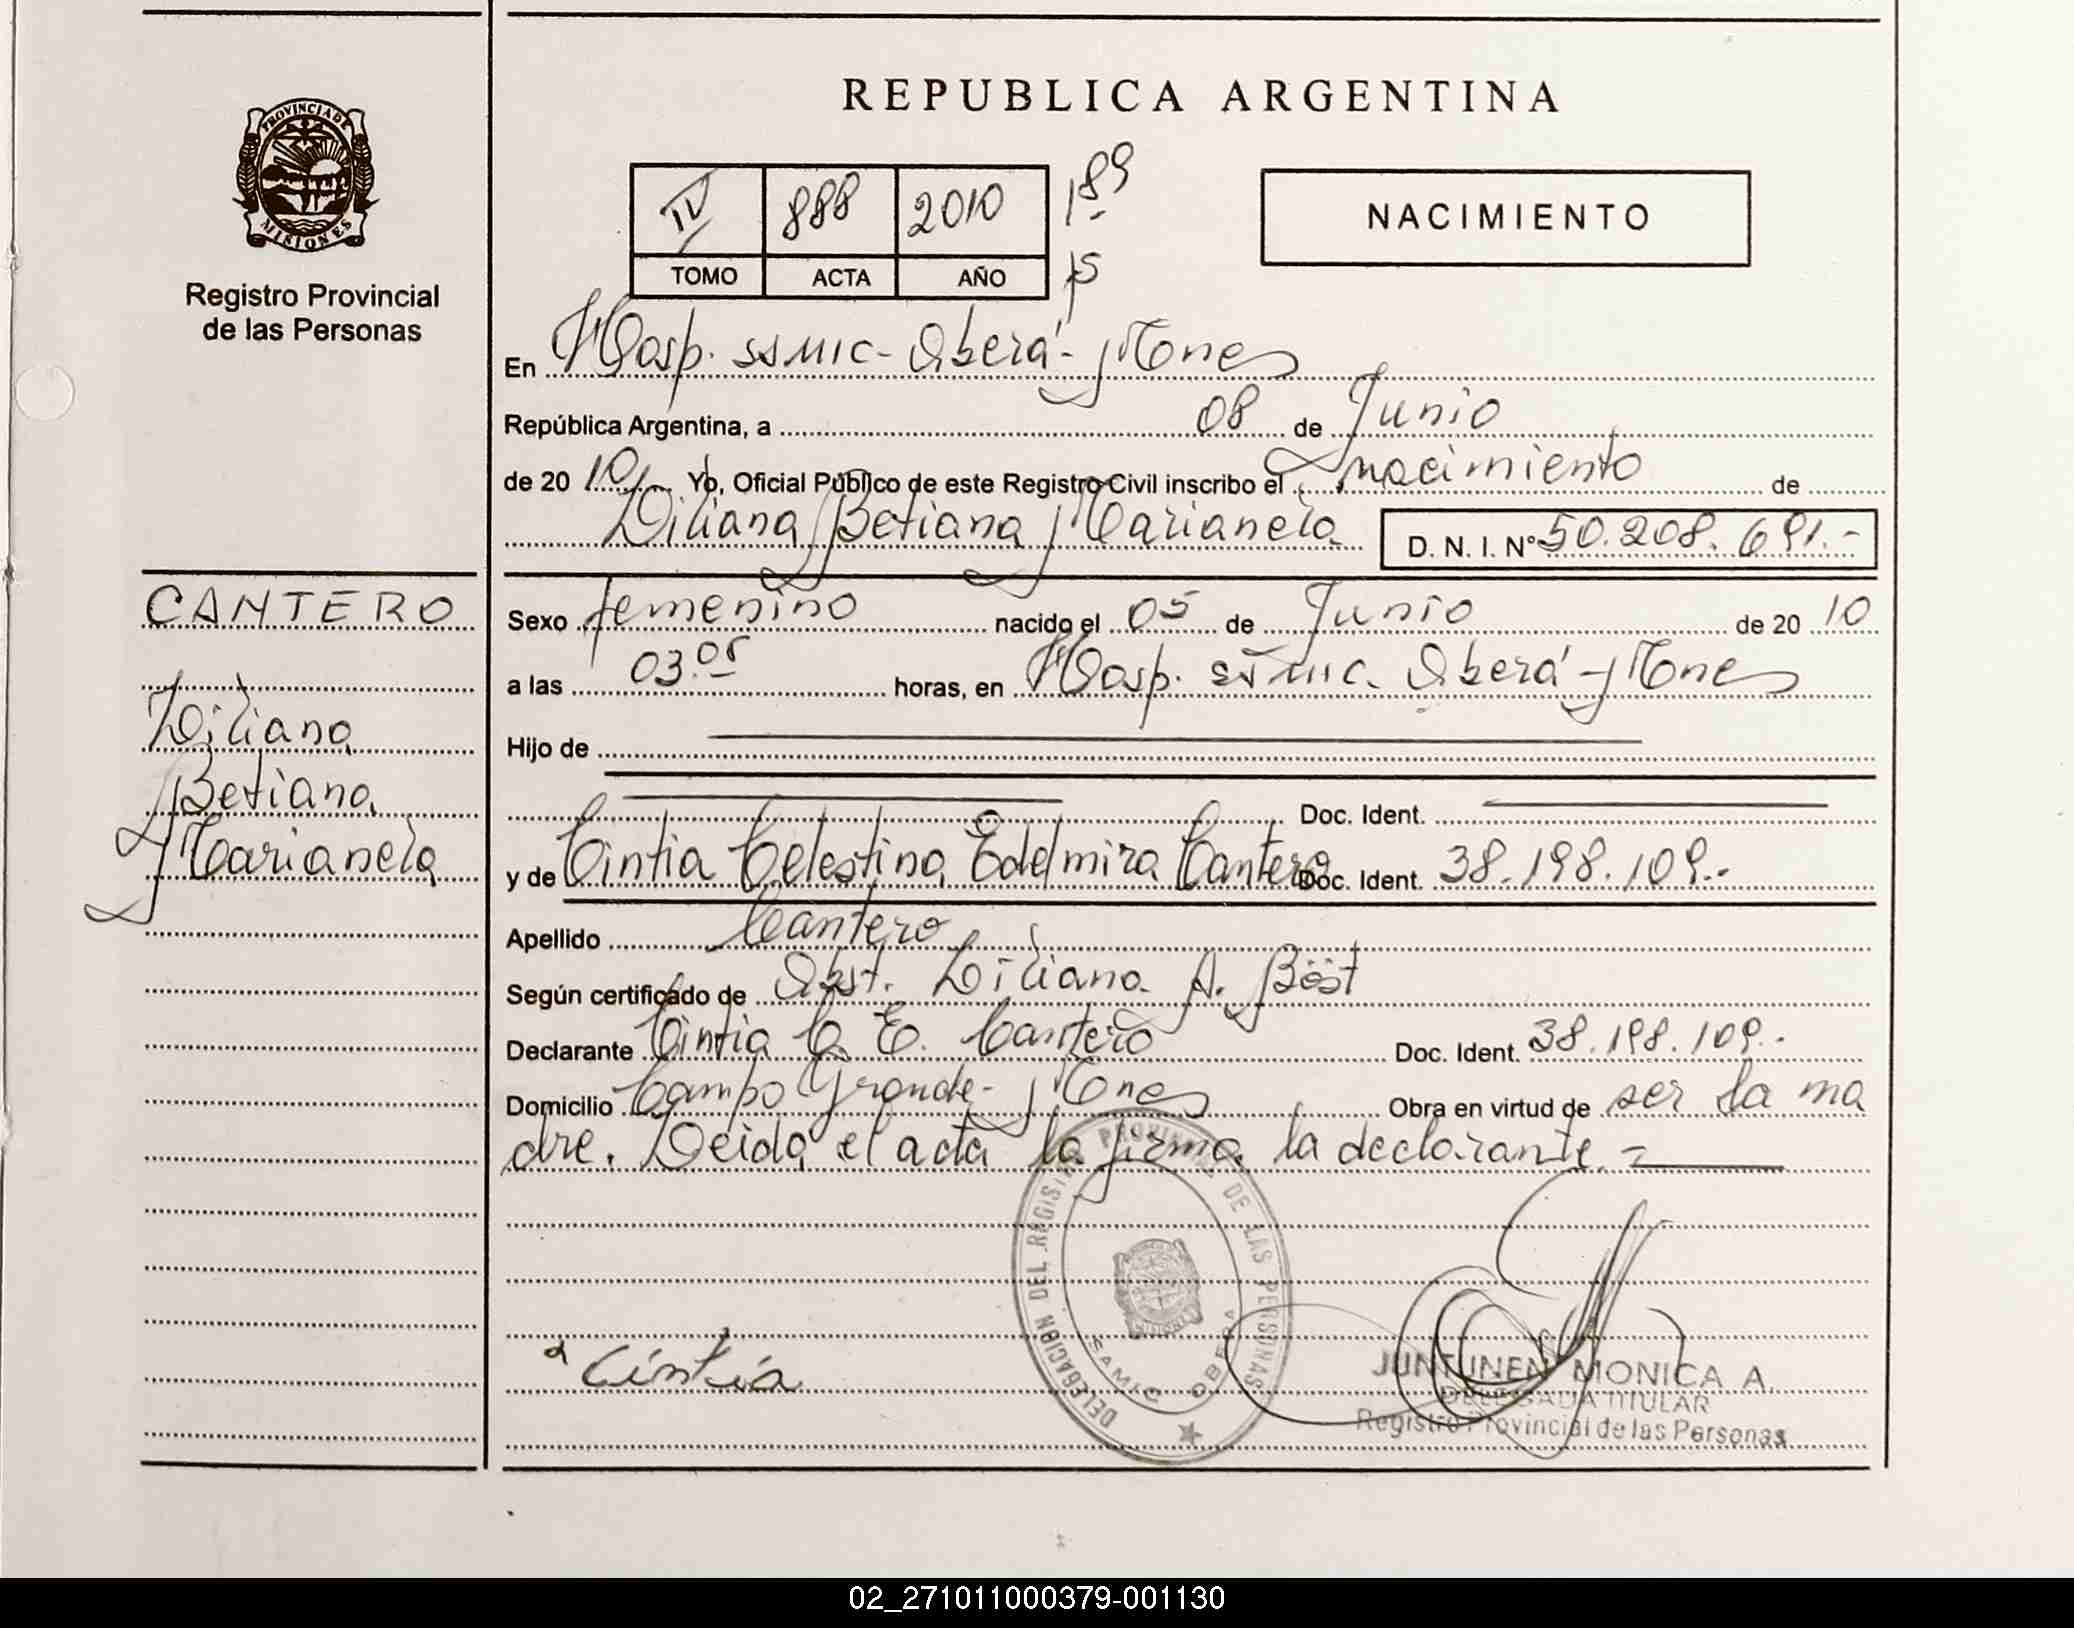 REPUBLICA ARGENTINA
PROVINCIA DE
MISIONES
Registro Provincial
de las Personas
IV 888 2010 189
TOMO ACTA AÑO 15
NACIMIENTO
En Hosp. SAMIC - Oberá - Mones
República Argentina, a 08 de Junio
de 20 10 Yo, Oficial Público de este Registro Civil inscribo el nacimiento de
Liliana Betiana Marianela D. N. I. N° 50.208.691.-
CANTERO
Liliana
Betiana
Marianela
Sexo femenino nacido el 05 de Junio de 20 10
a las 03.05 horas, en Hosp. SAMIC. Oberá - Mones
Hijo de
Doc. Ident.
y de Cintia Celestina Edelmira Cantero Doc. Ident. 38.198.109.-
Apellido Cantero
Según certificado de Obst. Liliana A. Böst
Declarante Cintia C. E. Cantero Doc. Ident. 38.198.109.-
Domicilio Campo Grande - Mones Obra en virtud de ser la ma
dre. Leida el acta la firma la declarante. -
DELEGACION DEL REGISTRO PROVINCIAL DE LAS PERSONAS
SAMIC OBERA
Cintia
JUNTUNEN MONICA A.
DELEGADA TITULAR
Registro Provincial de las Personas
02_271011000379-001130